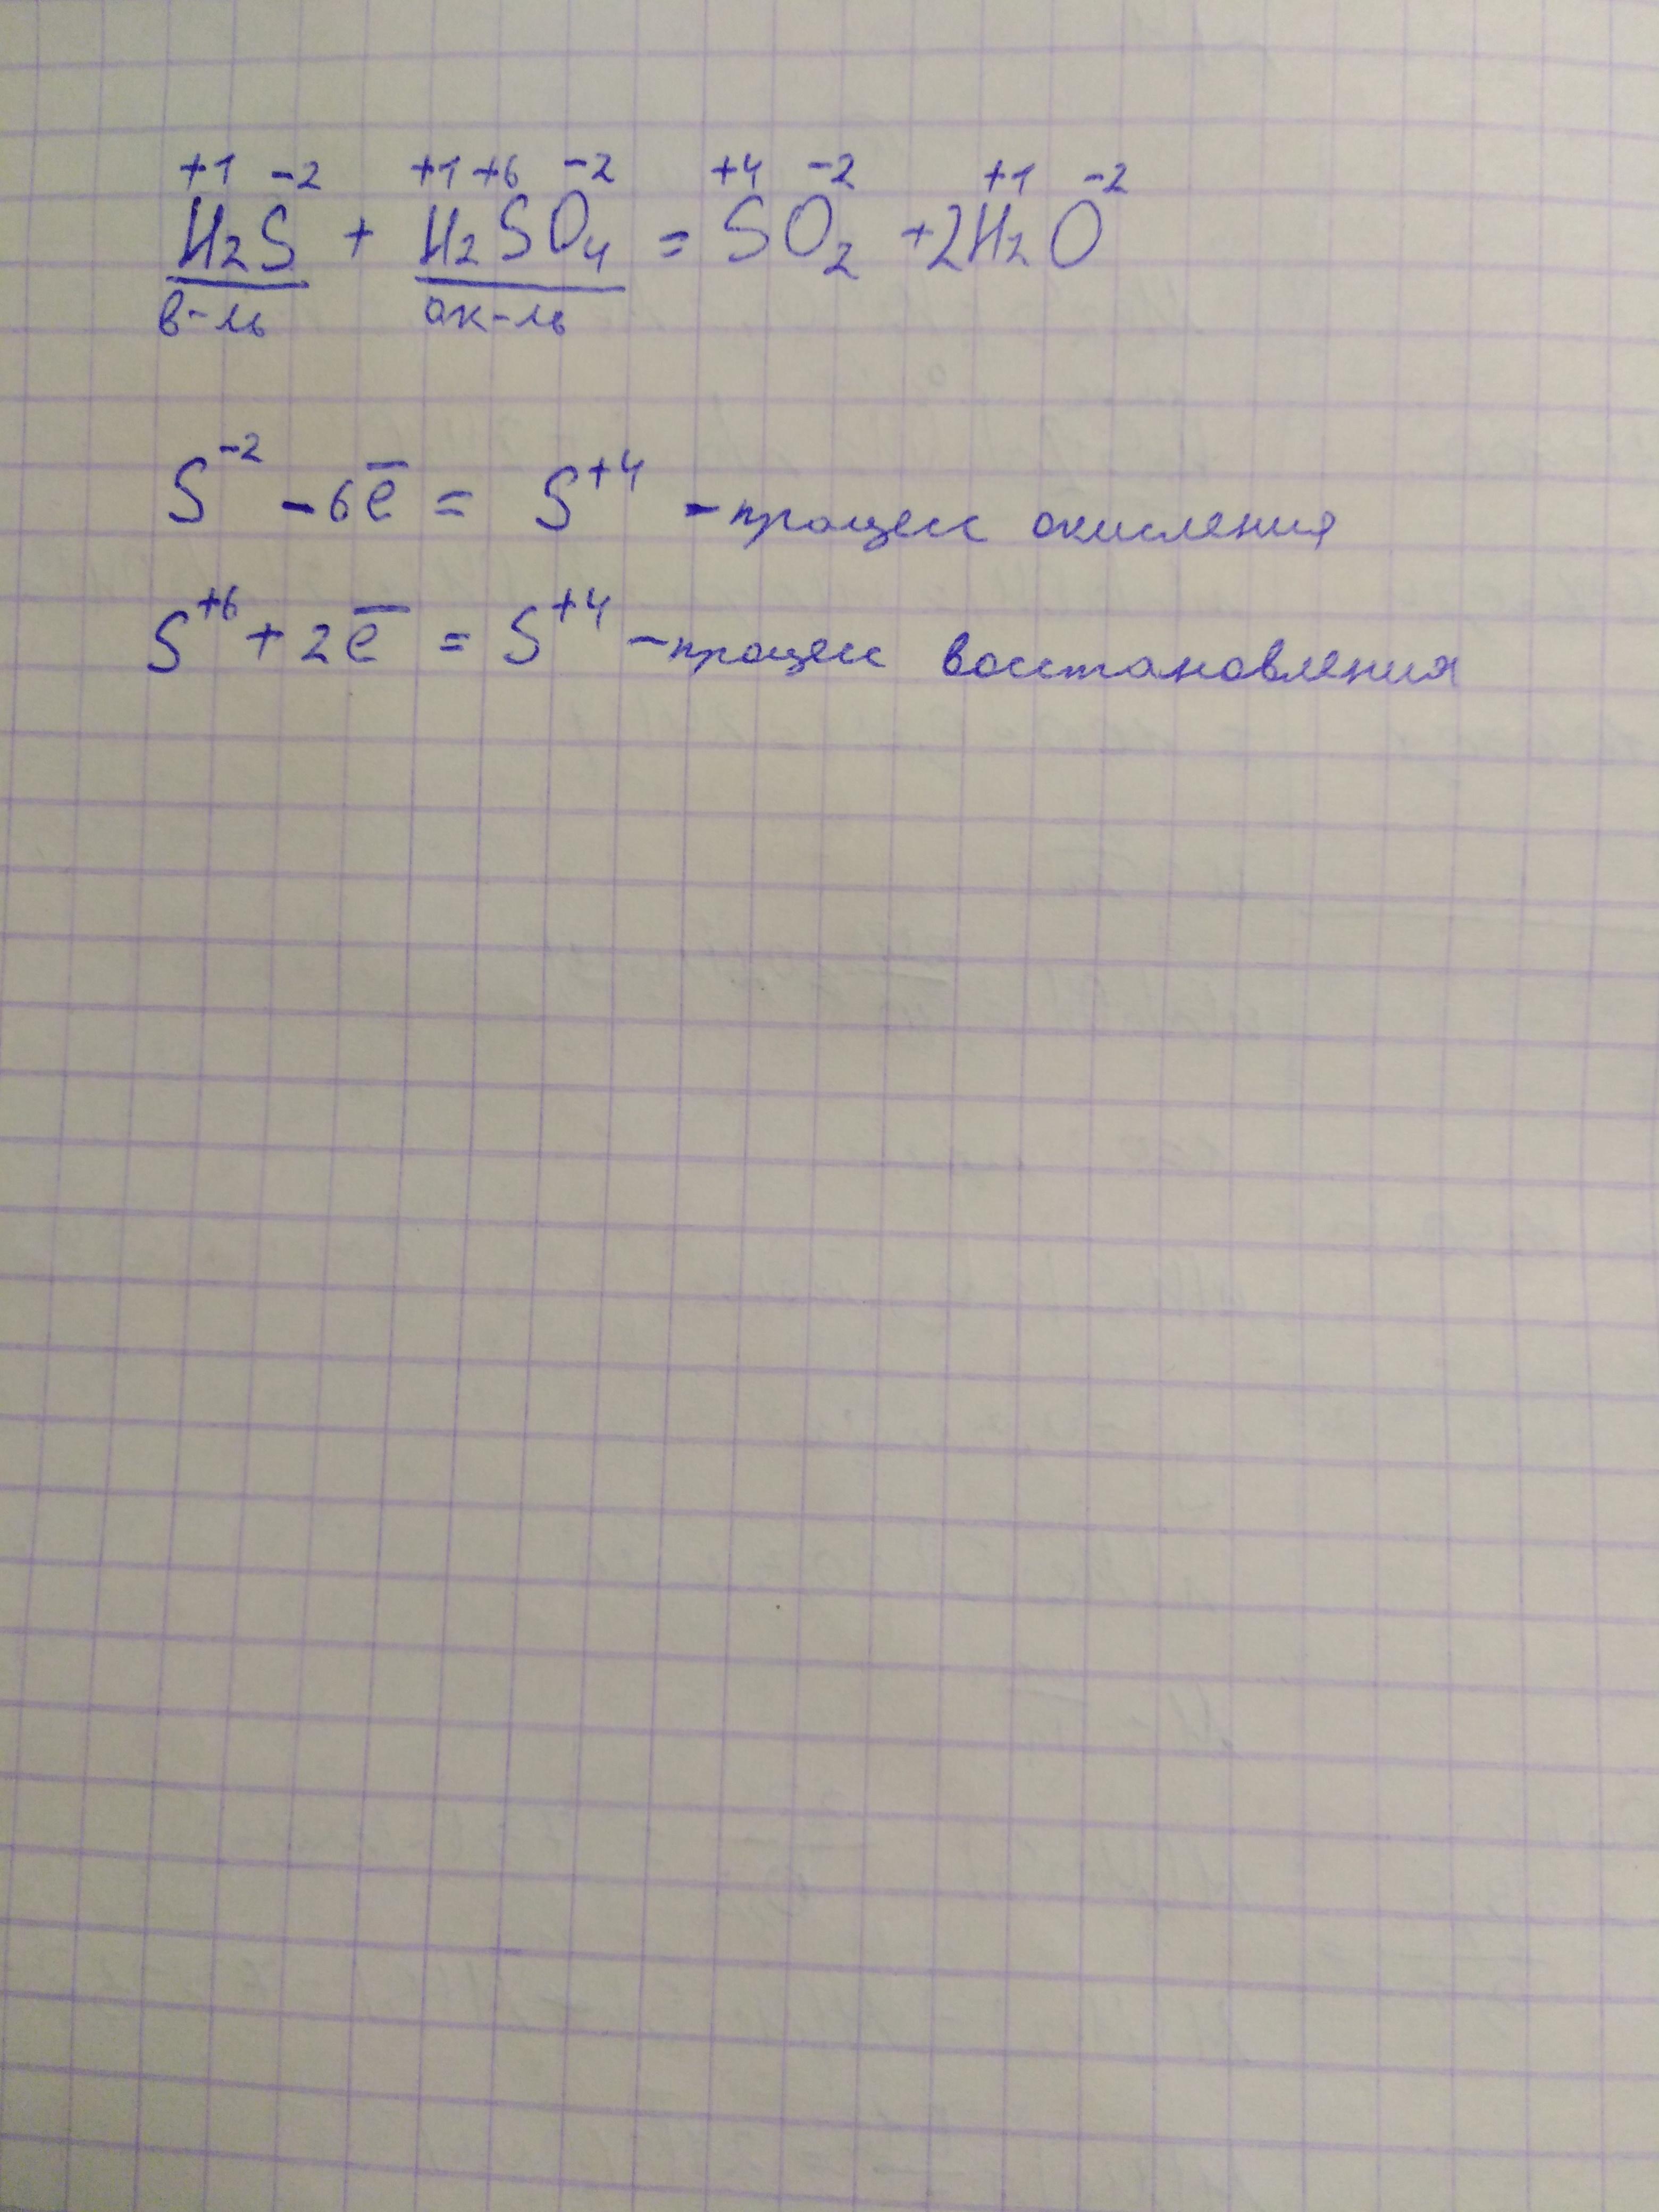 +1 -2 +1 +6 -2 +4 -2 +1 -2
H₂S + H₂SO₄ = SO₂ + 2H₂O
в-ль ок-ль
S⁻² - 6e̅ = S⁺⁴ - процесс окисления
S⁺⁶ + 2e̅ = S⁺⁴ - процесс восстановления